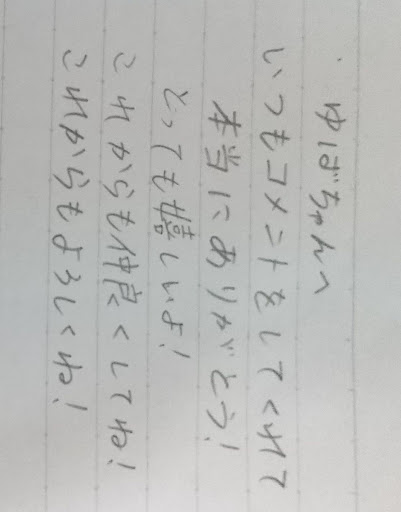 ゆばちゃんへ
いつもコメントをしてくれて
本当にありがとう!
とっても嬉しいよ!
これからも仲良くしてね!
これからもよろしくね!